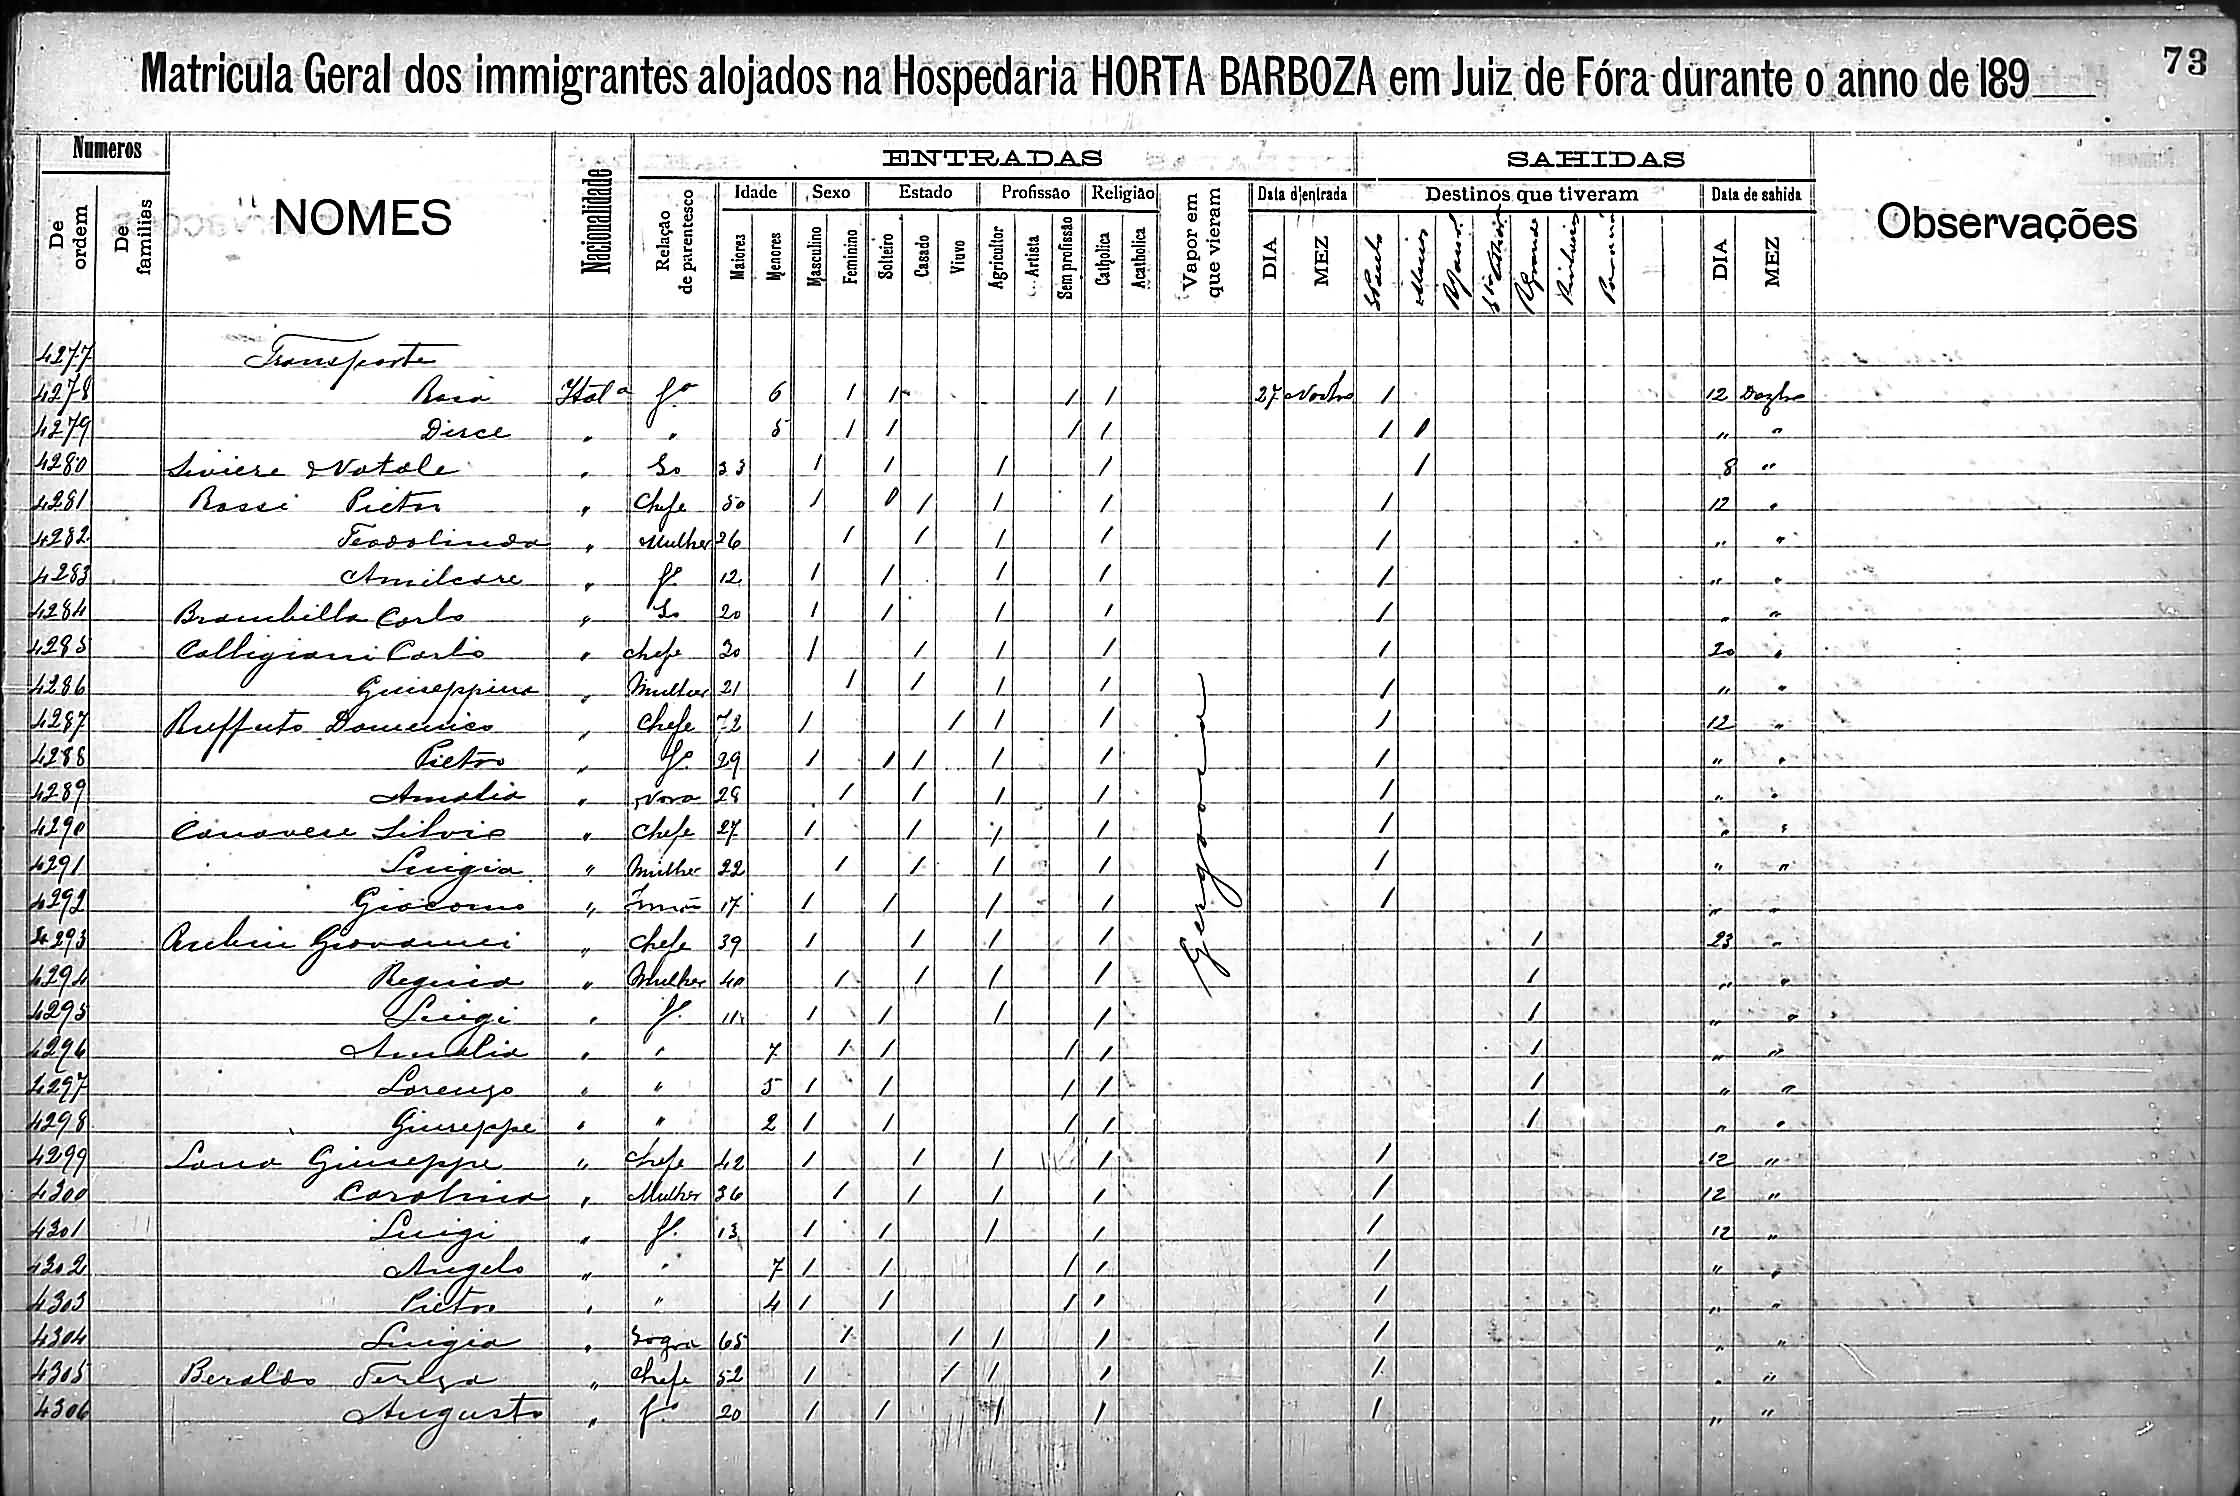 73
Matricula Geral dos immigrantes alojados na Hospedaria HORTA BARBOZA em Juiz de Fóra durante o anno de 189
Numeros
De ordem
De familias
NOMES
Nacionalidade
ENTRADAS
Relação de parentesco
Idade
Maiores
Menores
Sexo
Masculino
Feminino
Estado
Solteiro
Casado
Viuvo
Profissão
Agricultor
Artista
Sem profissão
Religião
Catholica
Acatholica
Vapor em que vieram
Data d'entrada
DIA
MEZ
SAHIDAS
Destinos que tiveram
S Paulo
Minas
Paraná
Data de sahida
DIA
MEZ
Observações
4277 Transporte
4278 Rosa Ital.a fa 6 1 1 1 1 27 Novbro 1 12 Dezbro
4279 Dirce " " 5 1 1 1 1 1 1 " "
4280 Liviere Natale " So 33 1 1 1 1 1 8 "
4281 Rossi Pietro " Chefe 50 1 1 1 1 1 12 "
4282 Teodolinda " Mulher 26 1 1 1 1 1 " "
4283 Amilcare " fo 12 1 1 1 1 1 " "
4284 Brambilla Carlo " So 20 1 1 1 1 1 " "
4285 Calligiani Carlo " Chefe 30 1 1 1 1 1 20 "
4286 Giuseppina " Mulher 21 1 1 1 1 1 " "
4287 Domenico " Chefe 72 1 1 1 1 1 12 "
4288 Pietro " fo 29 1 1 1 1 1 1 " "
4289 Amalia " Nora 28 1 1 1 1 1 " "
4290 Canavese Silvio " Chefe 27 1 1 1 1 1 " "
4291 Luigia " Mulher 22 1 1 1 1 1 " "
4292 Giacomo " Irmão 17 1 1 1 1 1 " "
4293 Giovanni " Chefe 39 1 1 1 1 1 23 "
4294 Regina " Mulher 40 1 1 1 1 1 " "
4295 Luigi " fo 11 1 1 1 1 1 " "
4296 Amalia " " 7 1 1 1 1 1 " "
4297 Lorenzo " " 5 1 1 1 1 1 " "
4298 Giuseppe " " 2 1 1 1 1 1 " "
4299 Lana Giuseppe " Chefe 42 1 1 1 1 1 12 "
4300 Carolina " Mulher 36 1 1 1 1 1 12 "
4301 Luigi " fo 13 1 1 1 1 1 12 "
4302 Angelo " " 7 1 1 1 1 1 " "
4303 Pietro " " 4 1 1 1 1 1 " "
4304 Luigia " Sogra 65 1 1 1 1 1 " "
4305 Beraldo Tereza " Chefe 52 1 1 1 1 1 " "
4306 Augusto " fo 20 1 1 1 1 1 " "